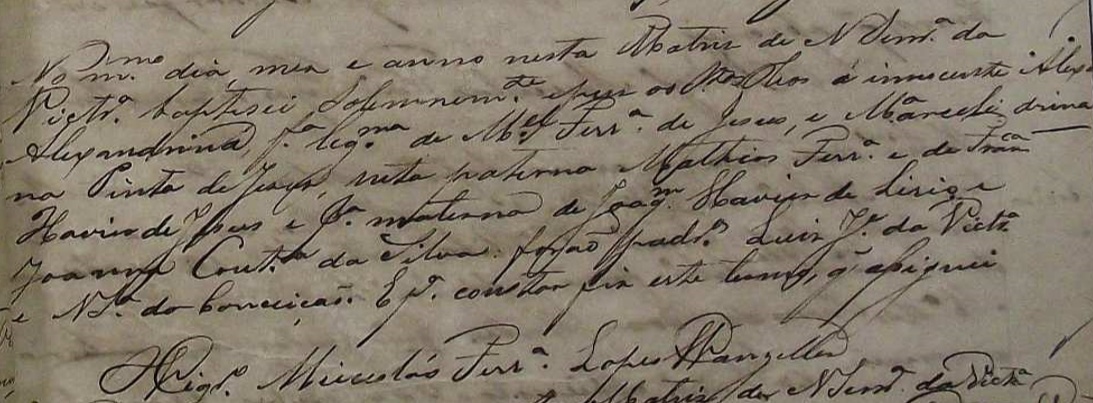 No m.mo dia, mez e anno nesta Matriz de N Senr.ª da
Vict.ª baptisei solemnem.te e puz os S.tos Oleos á innocente Alex
Alexandrina, f.ª leg.ma de M.el Ferr.ª de Jesus, e Marceli drina
na Pinta de Jesus, neta paterna Mathias Ferr.ª e de Fran.ca
Xavier de Jesus e p.r materna de Joaq.m Xavier de Lirio e
Joanna Cout.ª da Silva: forão padr.os Luiz J.e da Vict.ª
e N S.ª da Conceição. E p.ª constar fiz este termo, q̃ assignei
O Vigr.º Miecolás Ferr.ª Lopes Rangel
Matriz de N Senr.ª da Vict.ª